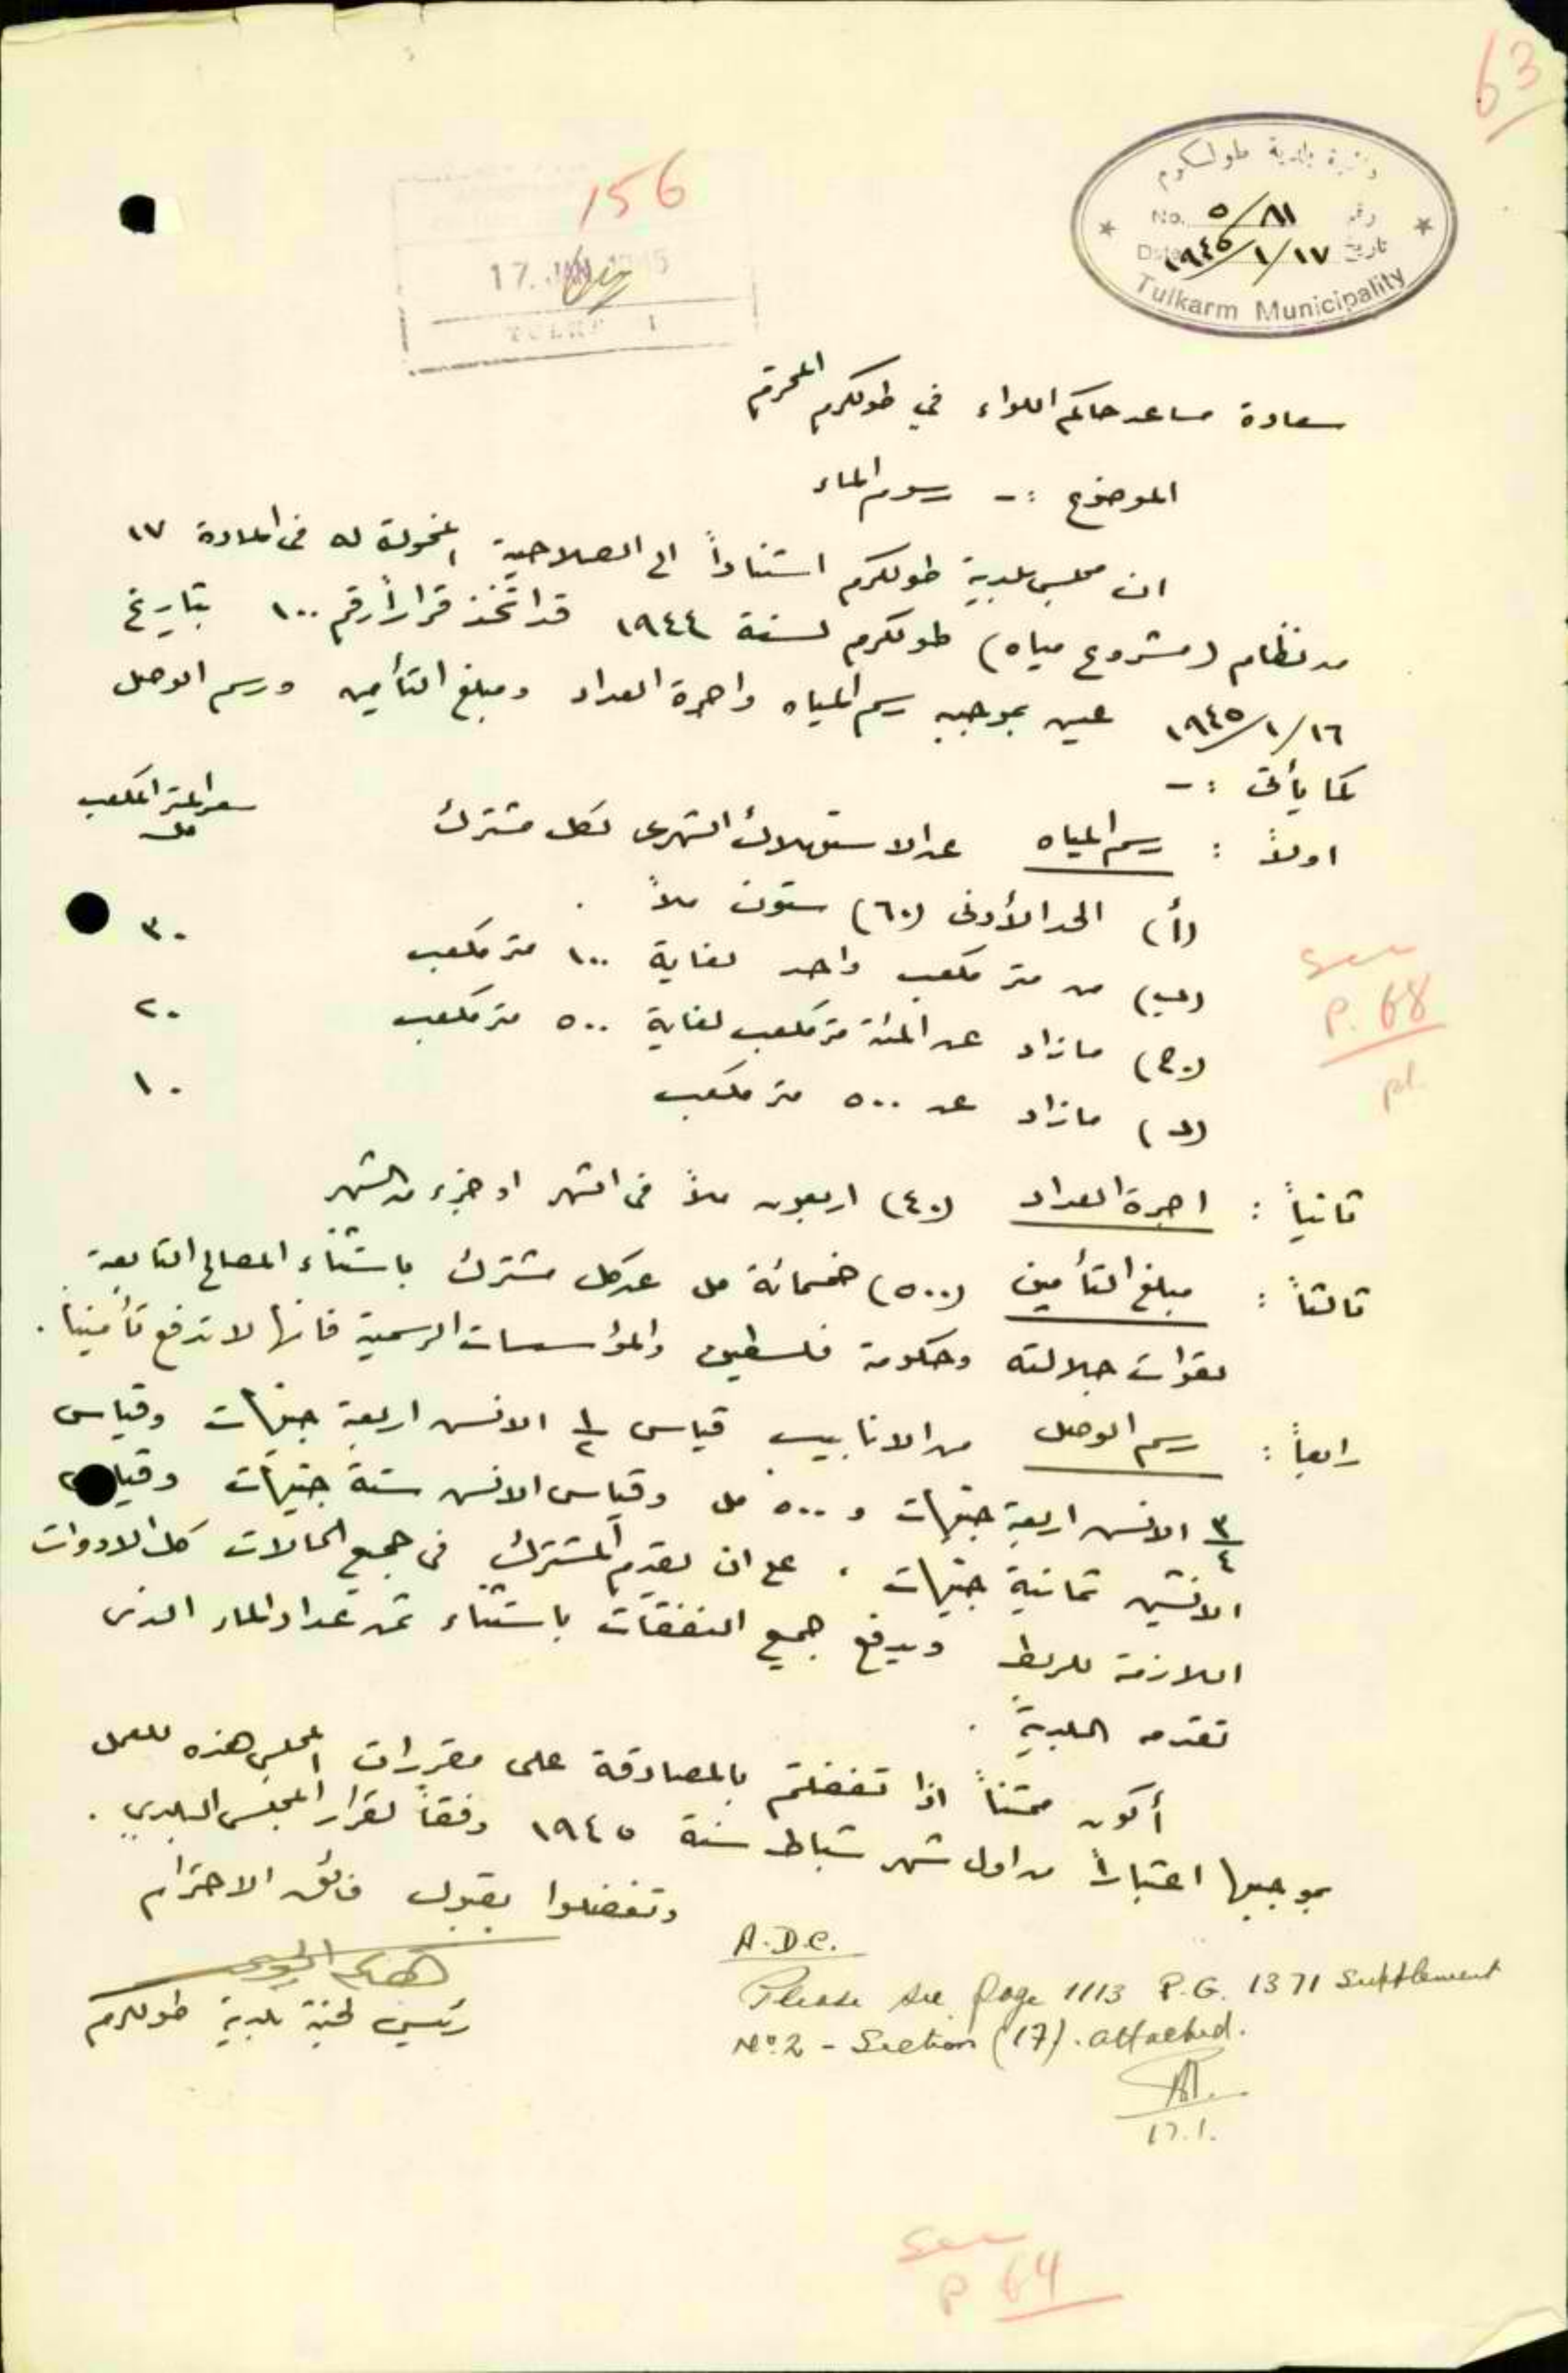 63
دائرة بلدية طولكرم
No. ٥/٨١ رقم
Date ١٩٤٥/١/١٧ تاريخ
Tulkarm Municipality
156
17 JAN 1945
سعادة مساعد حاكم اللواء في طولكرم المحترم
الموضوع :- رسوم الماء
ان مجلس بلدية طولكرم استناداً الى الصلاحية المخولة له في المادة ١٧
من نظام (مشروع مياه) طولكرم لسنة ١٩٤٤ قد اتخذ قراراً رقم ١٠٠ بتاريخ
١٩٤٥/١/١٦ عين بموجبه رسم المياه واجرة العداد ومبلغ التأمين ورسم الوصل
كما يأتي :-
سعر المتر المكعب
مل
اولاً : رسم المياه عن الاستهلاك الشهري لكل مشترك
(أ) الحد الأدنى (٦٠) ستون ملاً .
(ب) من متر مكعب واحد لغاية ١٠٠ متر مكعب ٣٠
(ج) ما زاد عن المئة متر مكعب لغاية ٥٠٠ متر مكعب ٢٠
(د) ما زاد عن ٥٠٠ متر مكعب ١٠
See
P. 68
ثانياً : اجرة العداد (٤٠) اربعون ملاً في الشهر او جزء من الشهر
ثالثاً : مبلغ التأمين (٥٠٠) خمسمائة مل عن كل مشترك باستثناء المصالح التابعة
لقوات جلالته وحكومة فلسطين والمؤسسات الرسمية فانها لا تدفع تأميناً .
رابعاً : رسم الوصل من الانابيب قياس ١/٢ الانس اربعة جنيهات وقياس
٣/٤ الانس اربعة جنيهات و ٥٠٠ مل وقياس الانس ستة جنيهات وقياس
الانشين ثمانية جنيهات . على ان يقدم المشترك في جميع الحالات كل الادوات
اللازمة للربط ويدفع جميع النفقات باستثناء ثمن عداد الماء الذي
تقدمه البلدية .
أكون ممتناً اذا تفضلتم بالمصادقة على مقررات المجلس هذه للعمل
بموجبها اعتباراً من اول شهر شباط سنة ١٩٤٥ وفقاً لقرار المجلس البلدي .
وتفضلوا بقبول فائق الاحترام
رئيس لجنة بلدية طولكرم
A.D.C.
Please see page 1113 P.G. 1371 Supplement
No. 2 - Section (17). attached.
17.1.
See
P 64